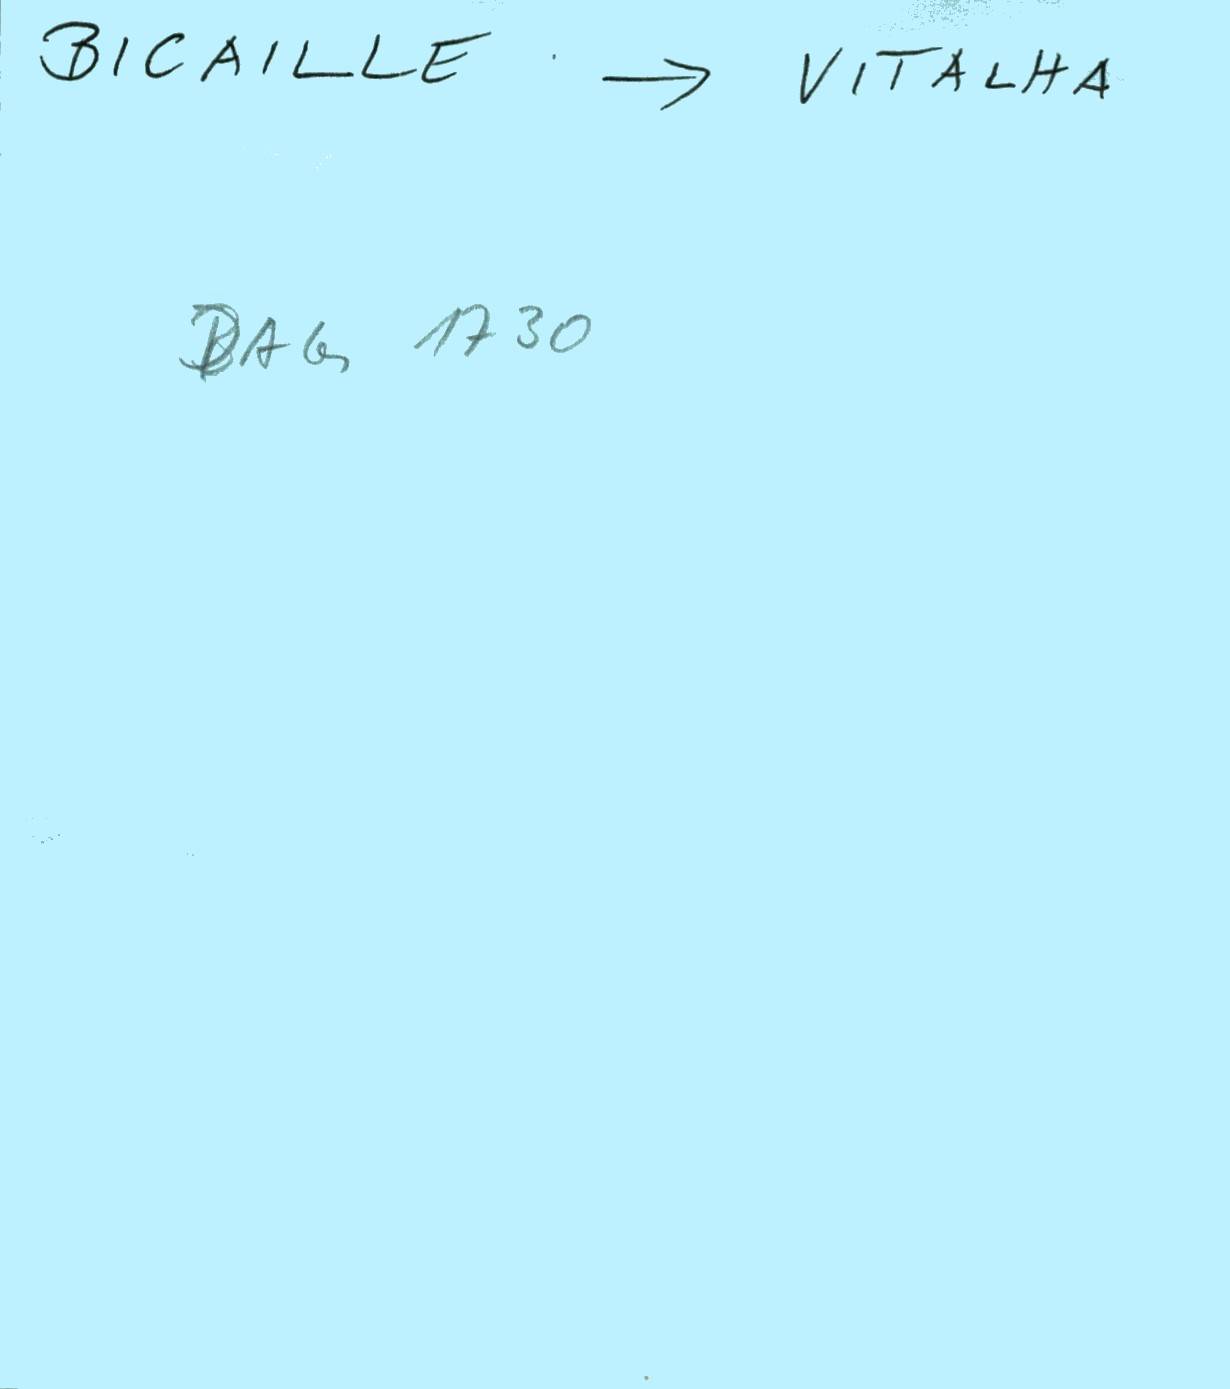 BICAILLE → VITALHA
DAG 1730